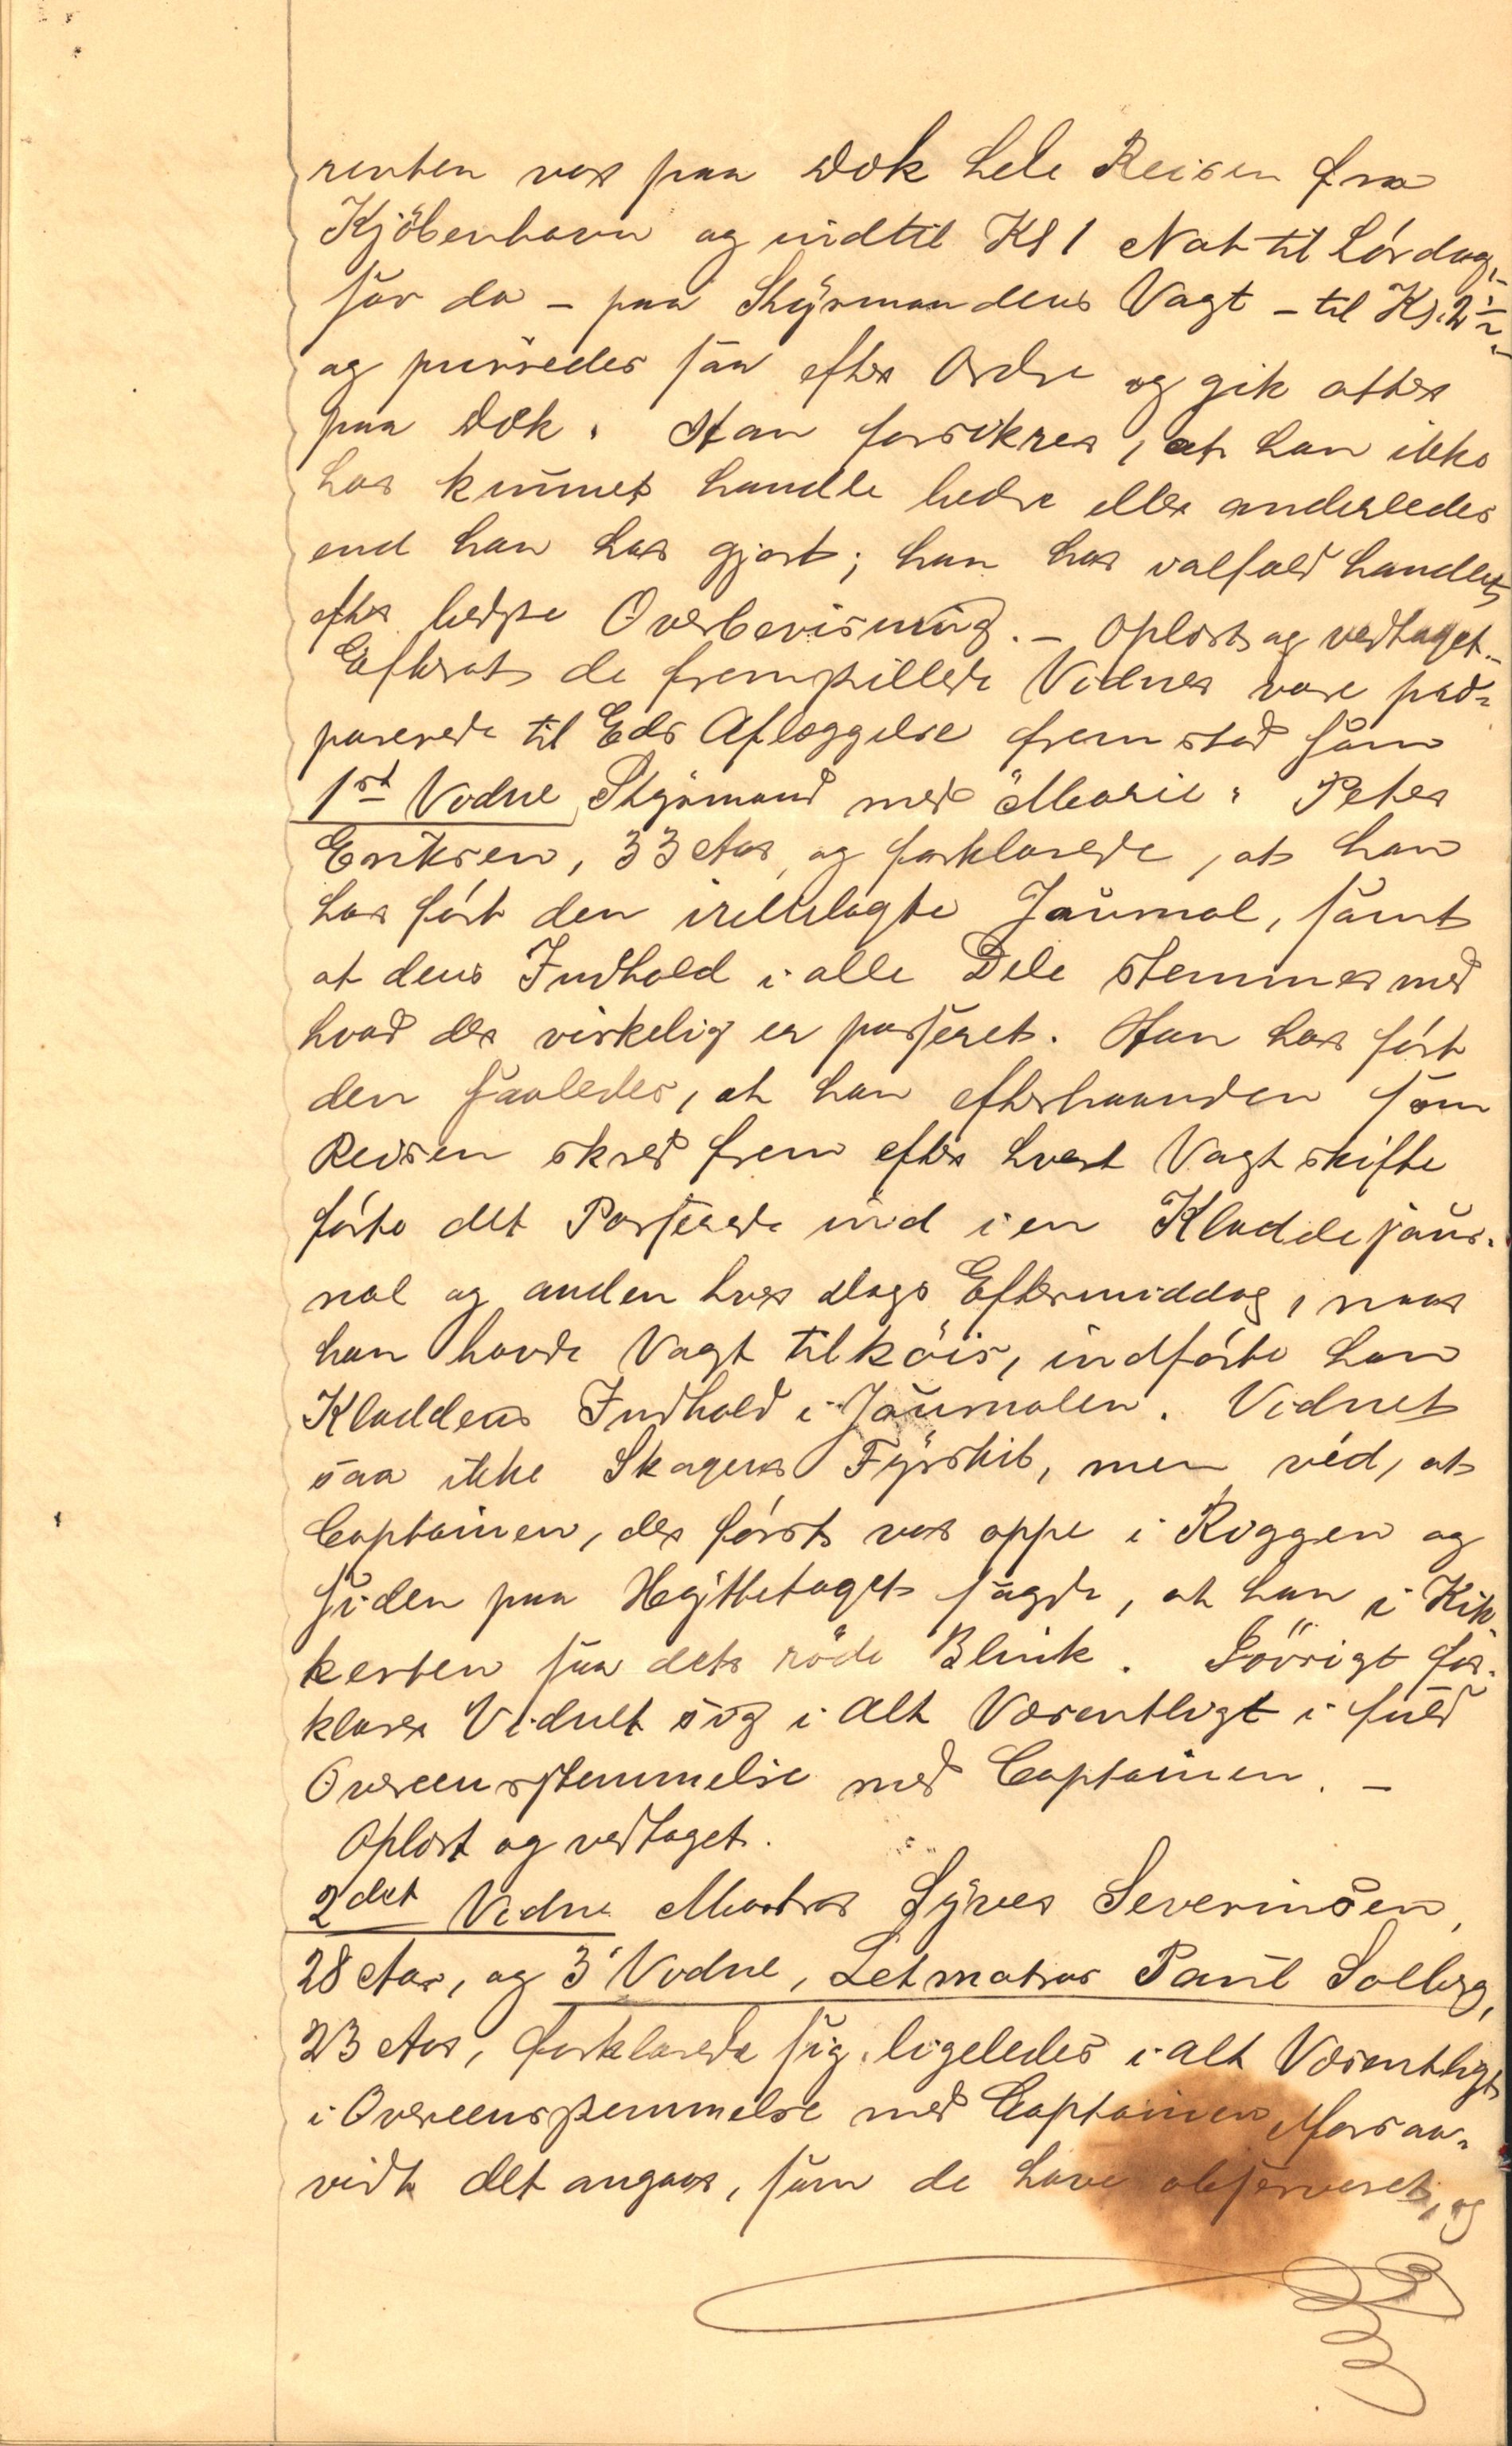 renten var paa Dæk hele Reisen fra
Kjöbenhavn og indtil Kl 1 Nat til Lördag,
sov da – paa Styrmandens Vagt – til Kl. 2 1/2
og purredes saa efter Ordre og gik atter
paa Dæk. Han forsikrer, at han ikke
har kunnet handle bedre eller anderledes
end han har gjort; han har ialfald handlet
efter bedste Overbevisning. – Oplæst og vedtaget. –
Efterat de fremstillede Vidner vare præ-
parerede til Eds Aflæggelse fremstod som
1st Vidne Styrmand med "Marie" Peter
Eriksen, 33 Aar, og forklarede, at han
har fört den irettelagte Journal, samt
at dens Indhold i alle Dele stemmer med
hvad der virkelig er passeret. Han har fört
den saaledes, at han efterhaanden som
Reisen skred frem efter hvert Vagtskifte
förte det Passerede ind i en Kladdejour-
nal og anden hver Dags Eftermiddag, naar
han havde Vagt tilköis, indförte han
Kladdens Indhold i Journalen. Vidnet
saa ikke Skagens Fyrskib, men véd, at
Captainen, der först var oppe i Riggen og
siden paa Hyttetaget sagde, at han i Kik-
kerten saa dets röde Blink. Iövrigt for-
klarer Vidnet sig i Alt Væsentligt i fuld
Overeensstemmelse med Captainen. –
Oplæst og vedtaget.
2det Vidne Matros Syver Severinsen,
28 Aar, og 3' Vidne, Letmatros Paul Solberg,
23 Aar, forklarede sig ligeledes i Alt Væsentligt
i Overeensstemmelse med Captainen forsaa-
vidt det angaar, som de have observeret, og